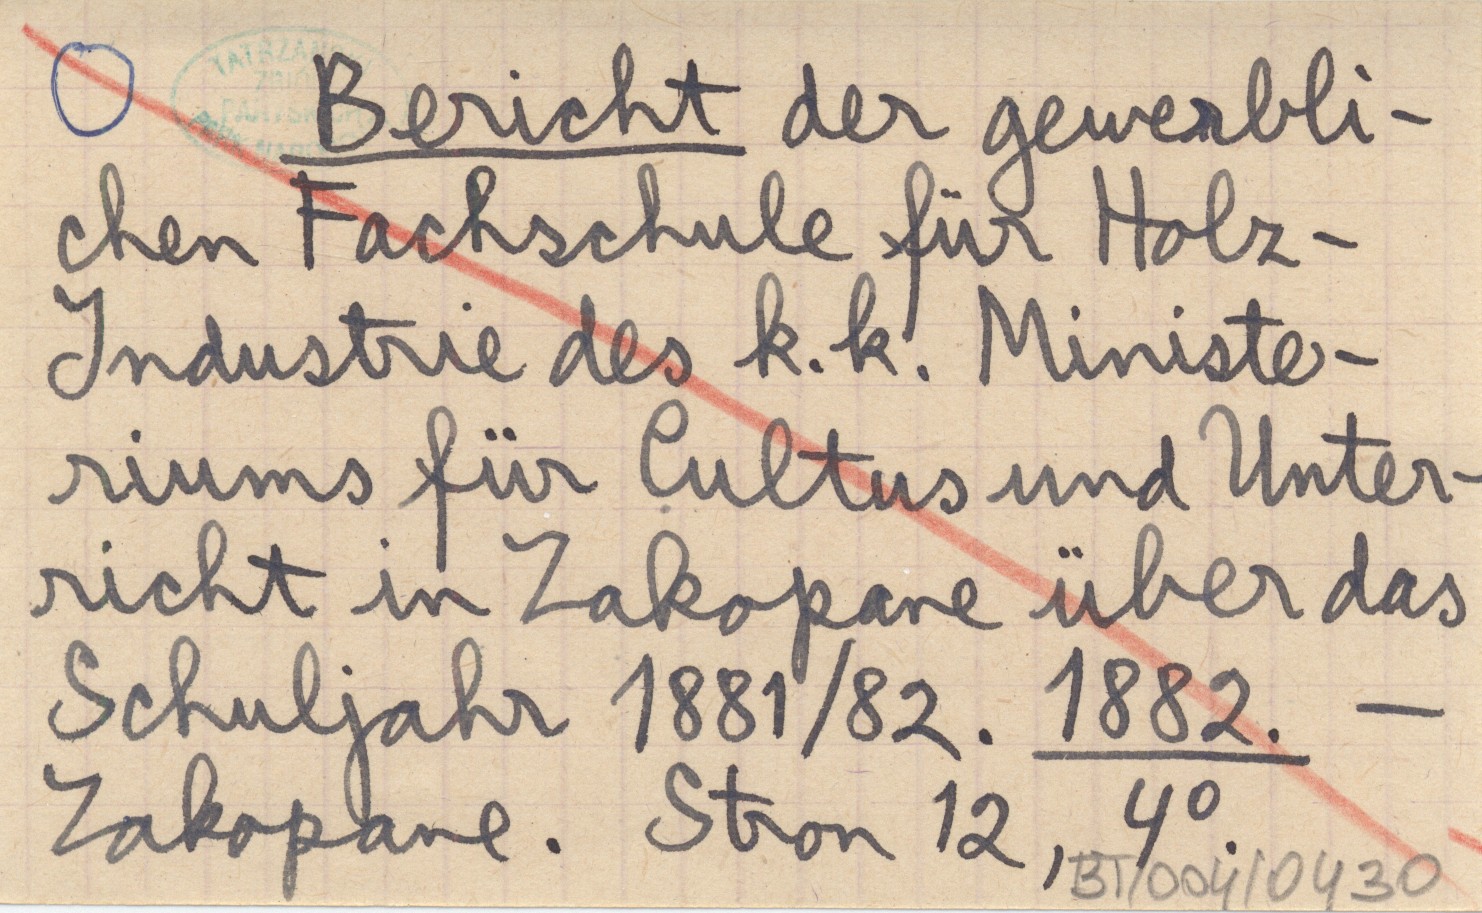 TATRZAŃSKI
ZBIÓR
Bericht der gewerbli-
chen Fachschule für Holz-
Industrie des k.k. Ministe-
riums für Cultus und Unter-
richt in Zakopane über das
Schuljahr 1881/82. 1882. —
Zakopane. Stron 12, 4º.
BT/004/0430